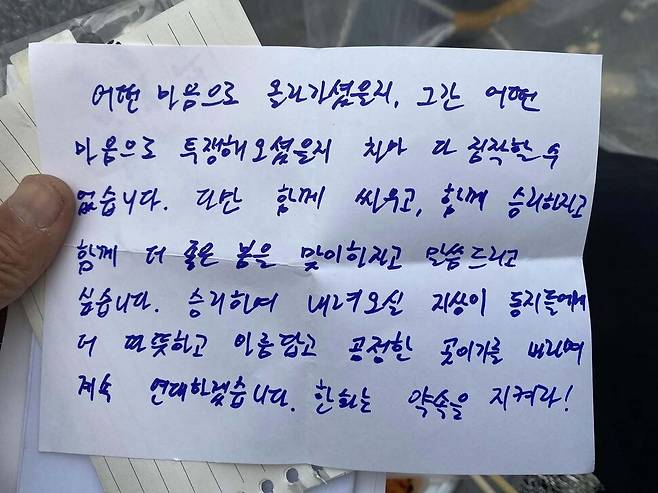 어떤 마음으로 올라가셨을지, 그간 어떤
마음으로 투쟁해오셨을지 차마 다 짐작할 수
없습니다. 다만 함께 싸우고, 함께 승리하자고
함께 더 좋은 봄을 맞이하자고 말씀드리고
싶습니다. 승리하여 내려오실 지상이 동지들에게
더 따뜻하고 아름답고 공정한 곳이기를 바라며
계속 연대하겠습니다. 한화는 약속을 지켜라!